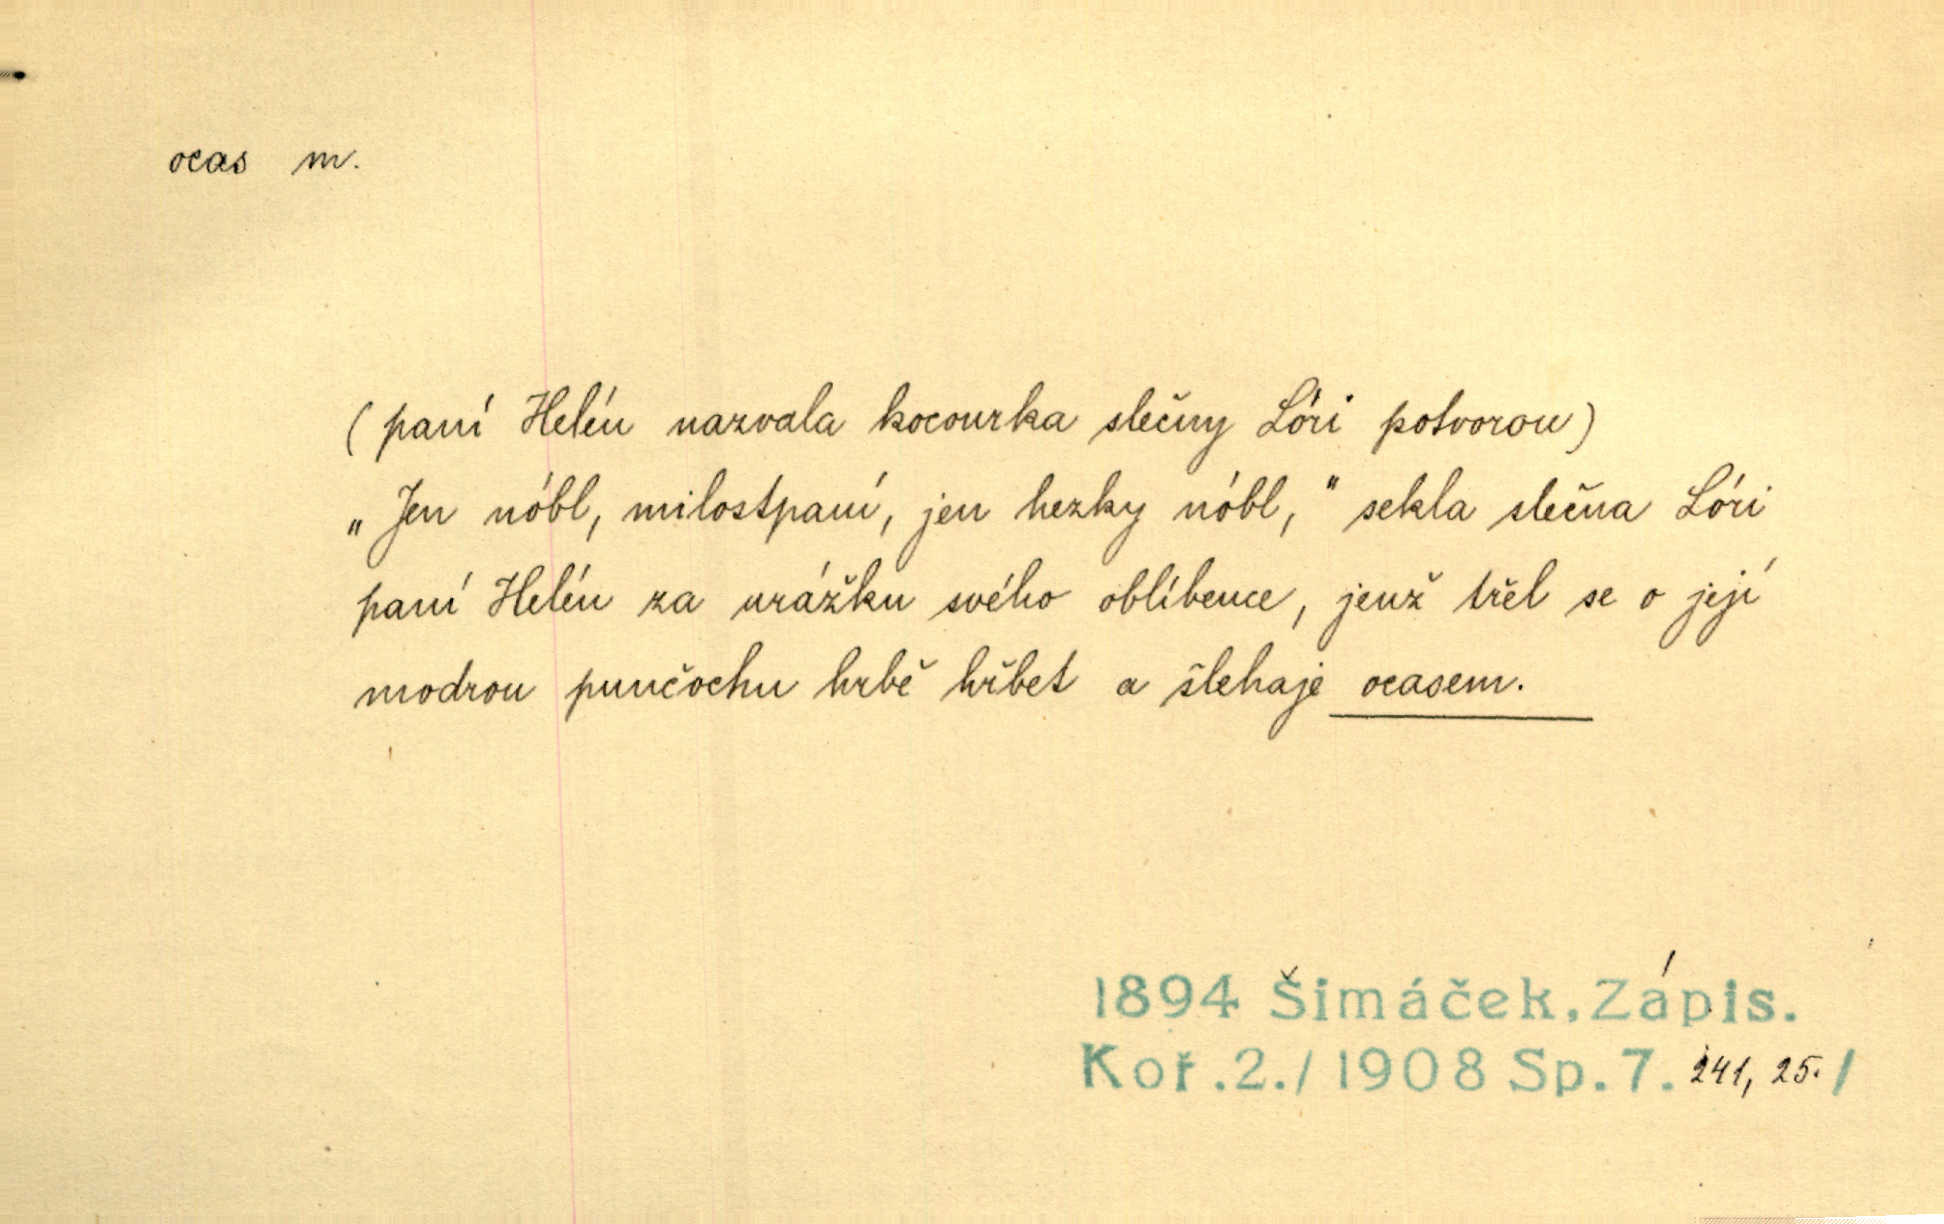 ocas m.
(paní Helén nazvala kocourka slečny Lóri potvorou)
„Jen nóbl, milostpaní, jen hezky nóbl,“ sekla slečna Lóri
paní Helén za urážku svého oblíbence, jenž třel se o její
modrou punčochu hrbě hřbet a šlehaje ocasem.
1894 Šimáček, Zápis.
Koř. 2./1908 Sp. 7. 241, 25./